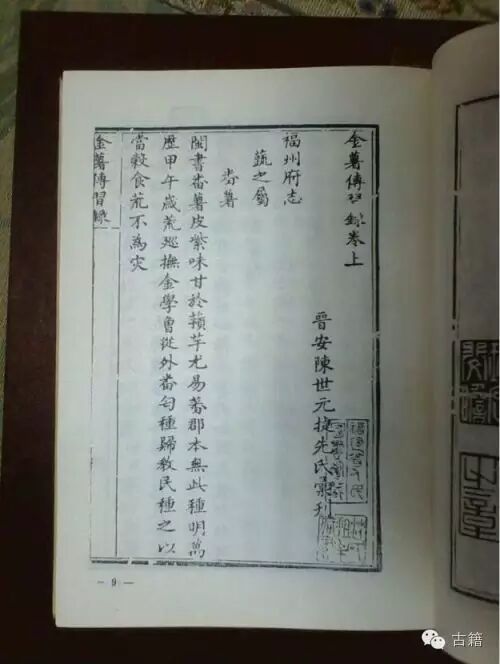 金薯傳習錄卷上
晉安陳世元捷先氏彙刊
福州府志
蔬之屬
畨薯
閩書畨薯皮紫味甘於薯芋尤易蕃郡本無此種明萬
歷甲午歲荒廵撫金學曾從外畨匄種歸教民種之以
當穀食荒不為灾
金薯傳習錄
— 9 —
古籍